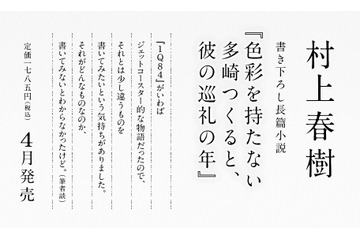 村上春樹
書き下ろし長篇小説
『色彩を持たない
多崎つくると、
彼の巡礼の年』
『1Q84』がいわば
ジェットコースター的な物語だったので、
それとは少し違うものを
書いてみたいという気持ちがありました。
それがどんなものなのか、
書いてみないとわからなかったけど。(筆者談)
定価一七八五円(税込)
4月発売